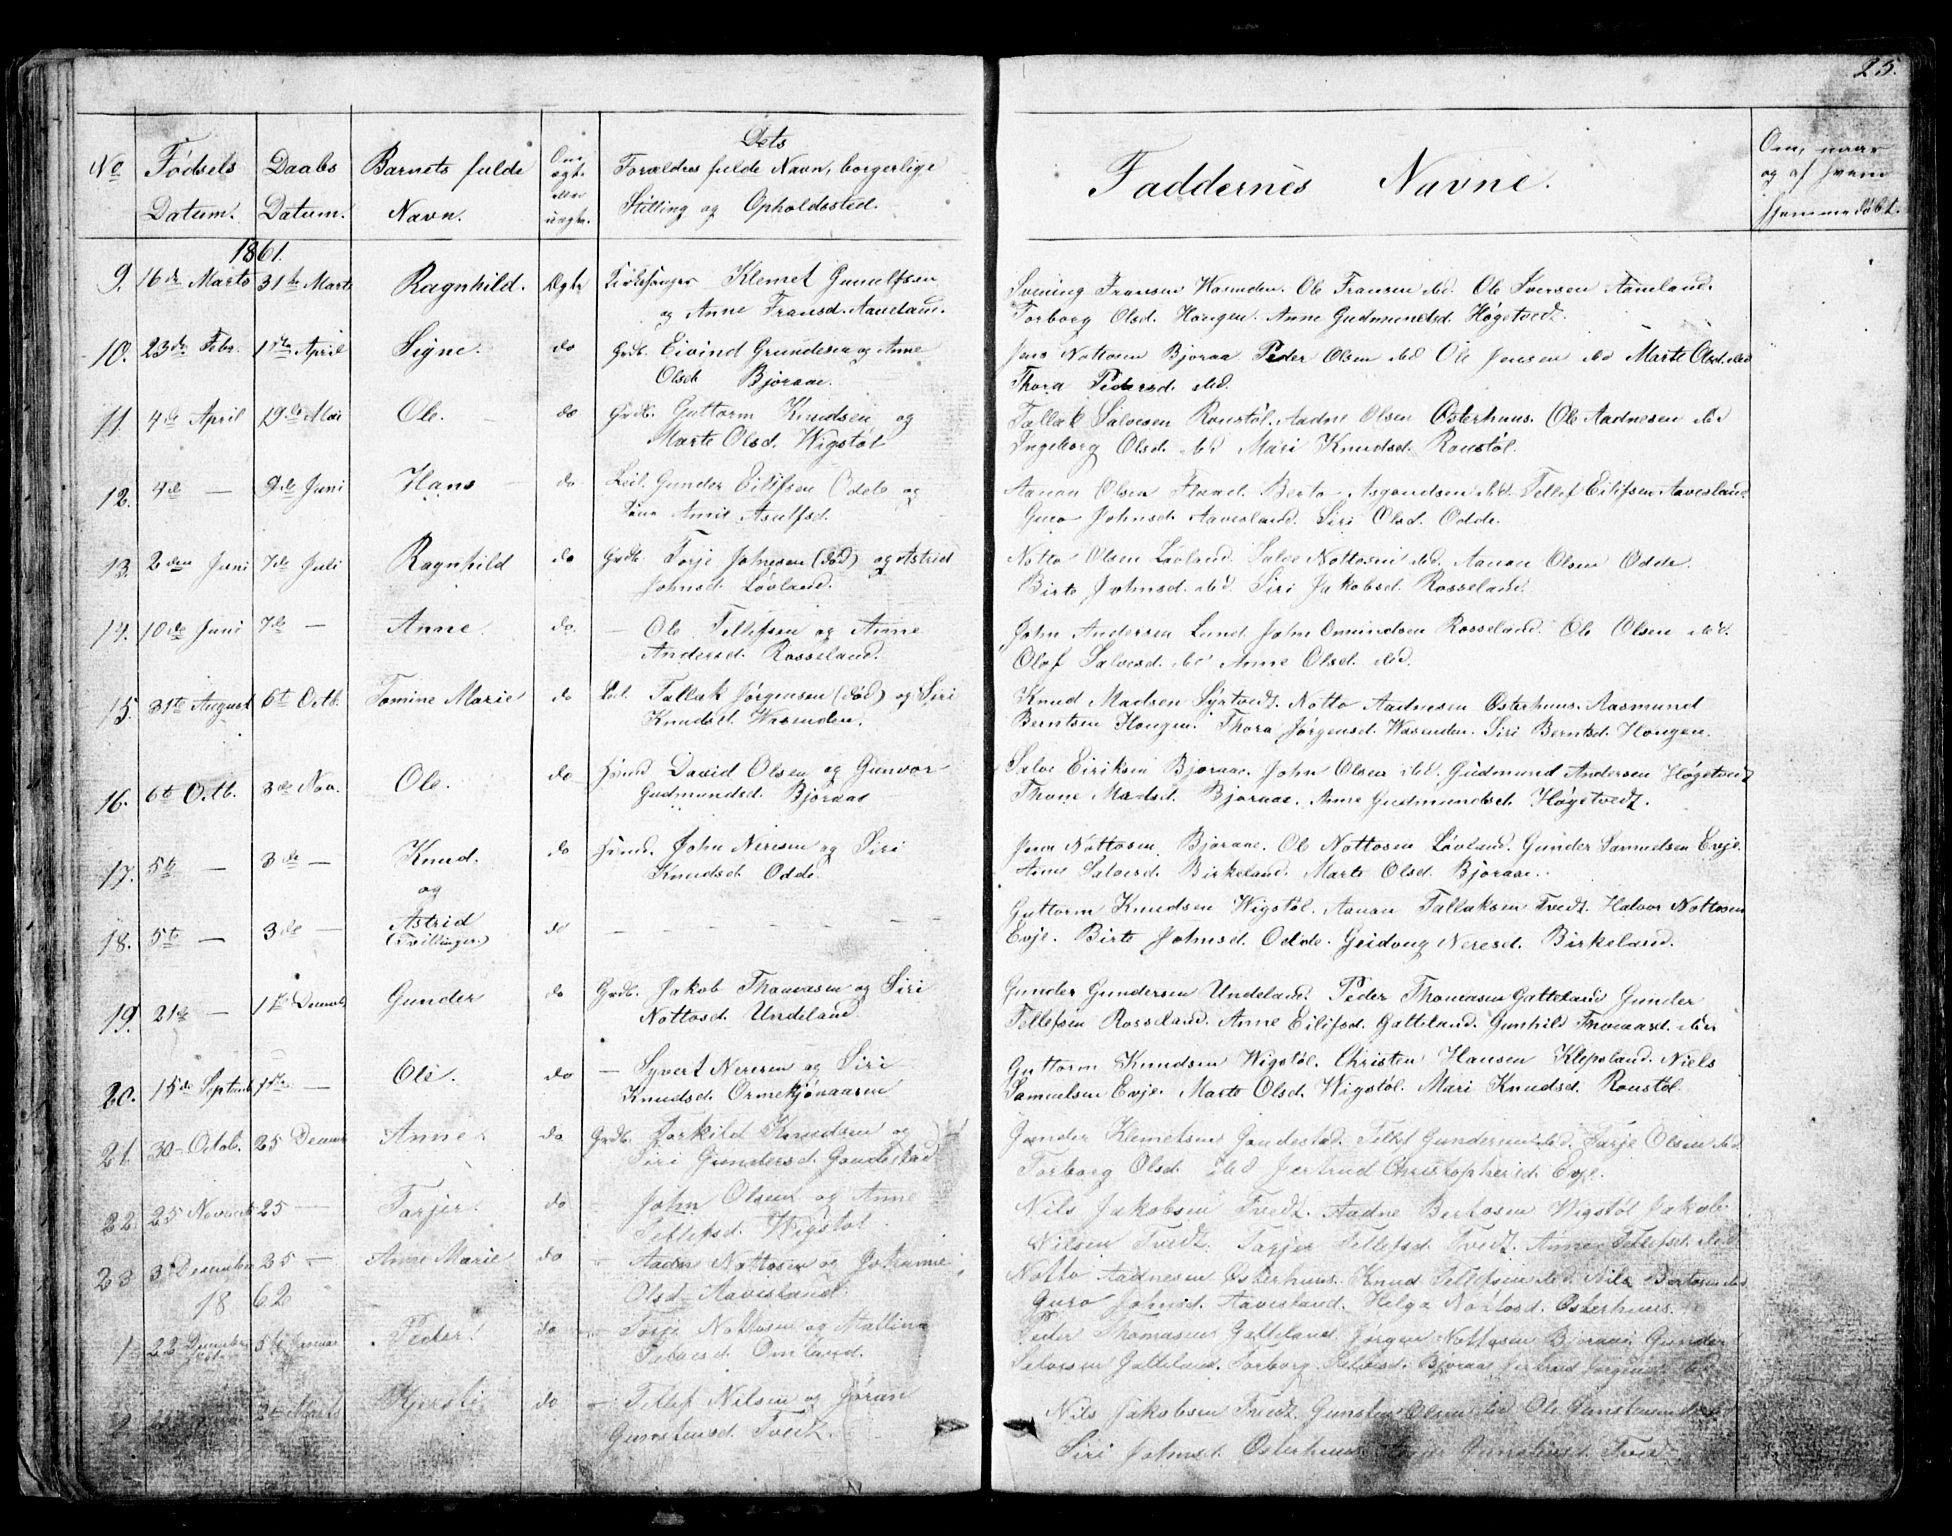 25.
No
Fødsels
Datum.
Daabs
Datum.
Barnets fulde
Navn.
Om
ægte
eller
uægte.
Dets
Forældres fulde Navn, borgerlige
Stilling og Opholdssted.
Faddernes Navne.
Om, naar
og af hvem
hjemmedøbt.
1861.
9. 16de Marts 31te Marts Ragnhild. Ægte Kirkesanger Klemet Gunulfsen
og Anne Fransd. Aavesland.
Svening Fransen Wasenden. Ole Fransen ibd. Ole Iversen Aamland.
Torborg Olsd. Hougen. Anne Gudmundsd. Høgetvedt.
10. 23de Febr. 1ste April Signe. do Grdb. Eivind Grundesen og Anne
Olsd. Bjoraae.
Jens Nottosen Bjoraa Peder Olsen ibd Ole Jensen ibd Marte Olsd. ibd
Thora Pedersd. ibd.
11. 4de April 19de Mai Ole. do Grdb. Guttorm Knudsen og
Marte Olsd. Wigstøl
Tallak Salvesen Roustøl. Aadne Olsen Østerhuus. Ole Aadnesen ibd
Ingeborg Olsd. ibd Mari Knudsd. Roustøl.
12. 4de — 9de Juni Hans do Leil. Gunder Eilifsen Odde og
Anne Asulfsd.
Aanon Olsen Flaad. Berto Asgundsen ibd. Tellef Eilifsen Aavesland
Guro Johnsd. Aavesland. Siri Olsd. Odde.
13. 2den Juni 7de Juli Ragnhild do Grdb. Torje Johnsen (død) og Astrid
Johnsd. Løvland.
Notto Olsen Løvland. Salve Nottosen ibd. Aanon Olsen Odde.
Birte Johnsd. ibd. Siri Jakobsd. Rosseland.
14. 10de Juni 7de — Anne. do. — Ole Tellefsen og Anne
Andersd. Rosseland.
John Andersen Lund. John Omundsen Rosseland. Ole Olsen ibd.
Olaf Salvesd. ibd Anne Olsd. ibd.
15. 31te August 6te Octb. Tomine Marie do Leil. Tallak Jørgensen (død) og Siri
Knudsd. Wasenden.
Knud Madsen Syrtvedt. Notto Aadnesen Østerhuus. Aasmund
Berntsen Hougen. Thora Jørgensd. Wasenden. Siri Berntsd. Hougen.
16. 6te Octb. 3de Nov. Ole. do Huusd. David Olsen og Gunvor
Gudmundsd. Bjoraae
Salve Eiriksen Bjoraae. John Olsen ibd. Gudmund Andersen Høgetvedt
Thone Madsd. Bjoraae. Anne Gudmundsd. Høgetvedt.
17. 5te — 3de — Knud. do Huusd. John Neresen og Siri
Knudsd. Odde.
og
Jens Nottosen Bjoraae. Ole Nottosen Løvland. Gunder Samuelsen Evje.
Anne Salvesd. Birkeland. Marte Olsd. Bjoraae.
18. 5te — 3de — Astrid
(Tvillinger) do — — — — —
Guttorm Knudsen Wigstøl. Aanon Tallaksen Tvedt. Halvor Nottosen
Evje. Birte Johnsd. Odde. Geidvug Neresd. Birkeland.
19. 21de — 1ste Decemb Gunder do Grdb. Jakob Thomasen og Siri
Nottosd. Undeland.
Gunder Gundersen Undeland. Peder Thomasen Gatteland Gunder
Tellefsen Rosseland. Anne Eilifsd. Gatteland. Gunhild Thomasd. ibd.
20. 15de Septemb 1ste — Ole. do — Syvert Neresen og Siri
Knudsd. Ormekjønaasen
Guttorm Knudsen Wigstøl. Christen Hansen Klepsland. Niels
Samuelsen Evje. Marte Olsd. Wigstøl. Mari Knudsd. Roustøl.
21. 30 Octob. 25 Decemb Anne. do Grdb. Torkild Knudsen og
Siri Gundersd. Gaudestad
Gunder Klemetsen Gaudestad. Tellef Gundersen ibd. Tarje Olsen ibd
Torborg Olsd. ibd Jertrud Christophersd. Evje.
22. 25 Novemb 25 — Tarjer. do — John Olsen og Anne
Tellefsd. Wigstøl.
Nils Jakobsen Tvedt. Aadne Bertosen Wigstøl Jakob
Nilsen Tvedt. Tarjer Tellefsd. Tvedt. Anne Tellefsd. ibd
23 3 December 25 — Anne Marie do — Aadne Nottosen og Johanne
Olsd. Aavesland.
Notto Aadnesen Østerhuus. Knud Tellefsen ibd. Nils Bertosen ibd
Guro Johnsd. Aavesland. Helga Nottosd. Østerhuus.
1862
1. 22 December 5te Januar Peder. do — Torje Nottosen og Mallina
Omland.
Peder Thomasen Gatteland Jørgen Nottosen Bjoraae. Gunder
Salvesen Gatteland. Torborg Bjoraae Jertrud Jørgensd. ibd
2 Marts Kjersti do — Tellef Nilsen og Jøran
Gunstensd. Tvedt.
Nils Jakobsen Tvedt. Gunsten Olsen ibd Ole Gunstensen
Siri Johnsd. Østerhuus. Gunstensd. Tvedt